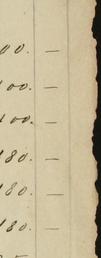 00. —
100. —
100. —
180. —
180. —
180. —